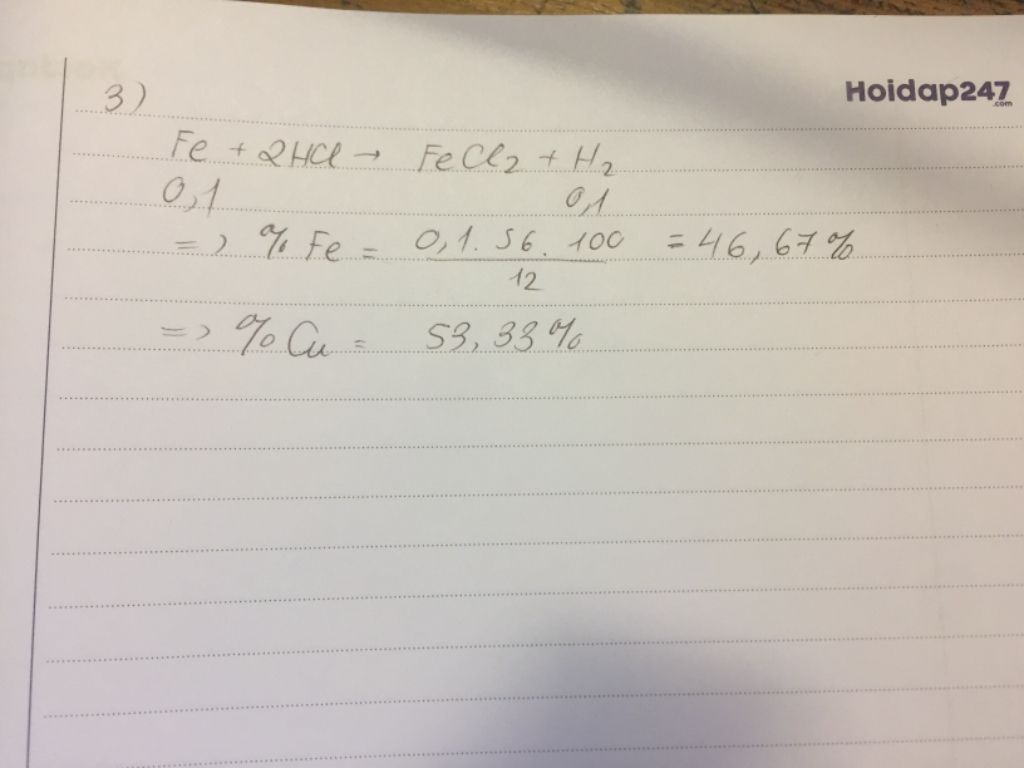 Hoidap247
.com
3)
Fe + 2HCl → FeCl2 + H2
0,1 0,1
=> % Fe = 0,1. 56. 100 = 46,67%
12
=> % Cu = 53,33%